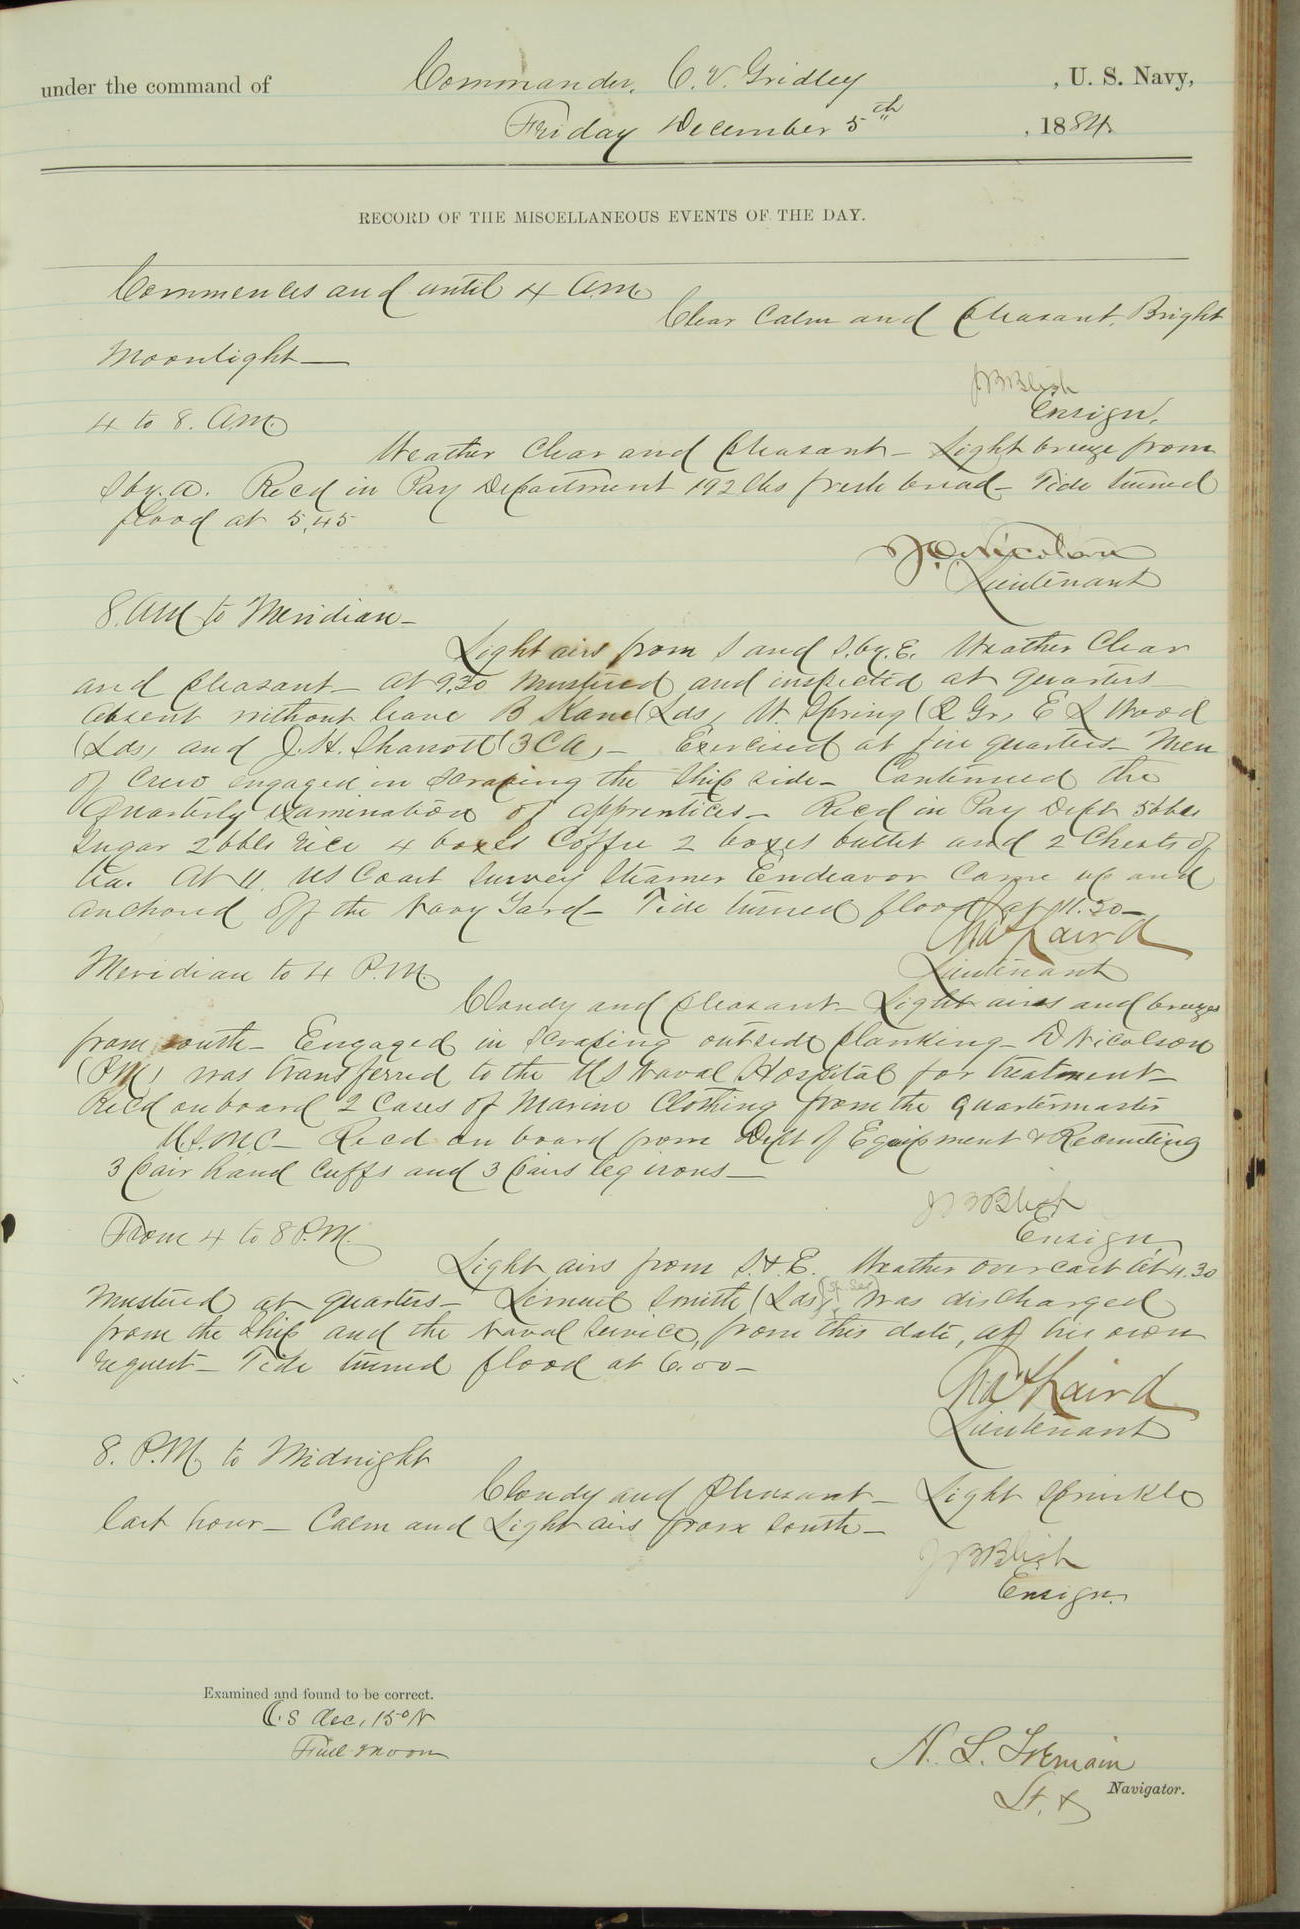 under the command of Commander, C. V. Gridley , U. S. Navy,
Friday December 5th , 1884.
RECORD OF THE MISCELLANEOUS EVENTS OF THE DAY.
Commences and until 4 A.M.
Clear Calm and pleasant. Bright
Moonlight—
J B Blish
Ensign.
4 to 8. A.M.
Weather Clear and pleasant— Light breeze from
Rec'd in Pay Department 192 lbs fresh bread— Tide turned
flood at 5.45
Nicolson
Lieutenant
8. AM to Meridian—
Light airs from S and S. by. E. Weather Clear
and pleasant— At 9.30 Mustered and inspected at quarters—
Absent without leave B Kane (Lds, W. Spring ( E L Wood
(Lds, and J. H. Sharrott (3CA,— Exercised at fire quarters— Men
of Crew engaged in scraping the ship side— Continued the
Quarterly examination of apprentices— Rec'd in Pay Dept 5 bbls
sugar 2 bbls rice 4 boxes Coffee 2 boxes butter and 2 Chests of
tea. At 11. US Coast Survey Steamer Endeavor Came up and
anchored off the Navy Yard— Tide turned flood at 11.30—
Laird
Lieutenant
Meridian to 4 P.M.
Cloudy and pleasant— Light airs and breezes
from south— Engaged in scraping outside planking— D Nicolson
(PM) was transferred to the US Naval Hospital for treatment—
Rec'd on board 2 Cases of Marine Clothing from the Quartermaster
U.S.M.C— Rec'd on board from Dept of Equipment & Recruiting
3 pair hand Cuffs and 3 pairs leg irons—
J B Blish
Ensign
From 4 to 8 P.M.
Light airs from S. & E. Weather overcast At 4.30
Mustered at quarters— Lemuel Smith (Lds) was discharged
from the Ship and the Naval Service, from this date, at his own
request— Tide turned flood at 6.00—
Laird
Lieutenant
8. P.M. to Midnight
Cloudy and pleasant— Light sprinkle
last hour— Calm and Light airs from south—
J B Blish
Ensign.
Examined and found to be correct.
dec, 15° N
Full moon
H. L. Tremain
Lt. &
Navigator.